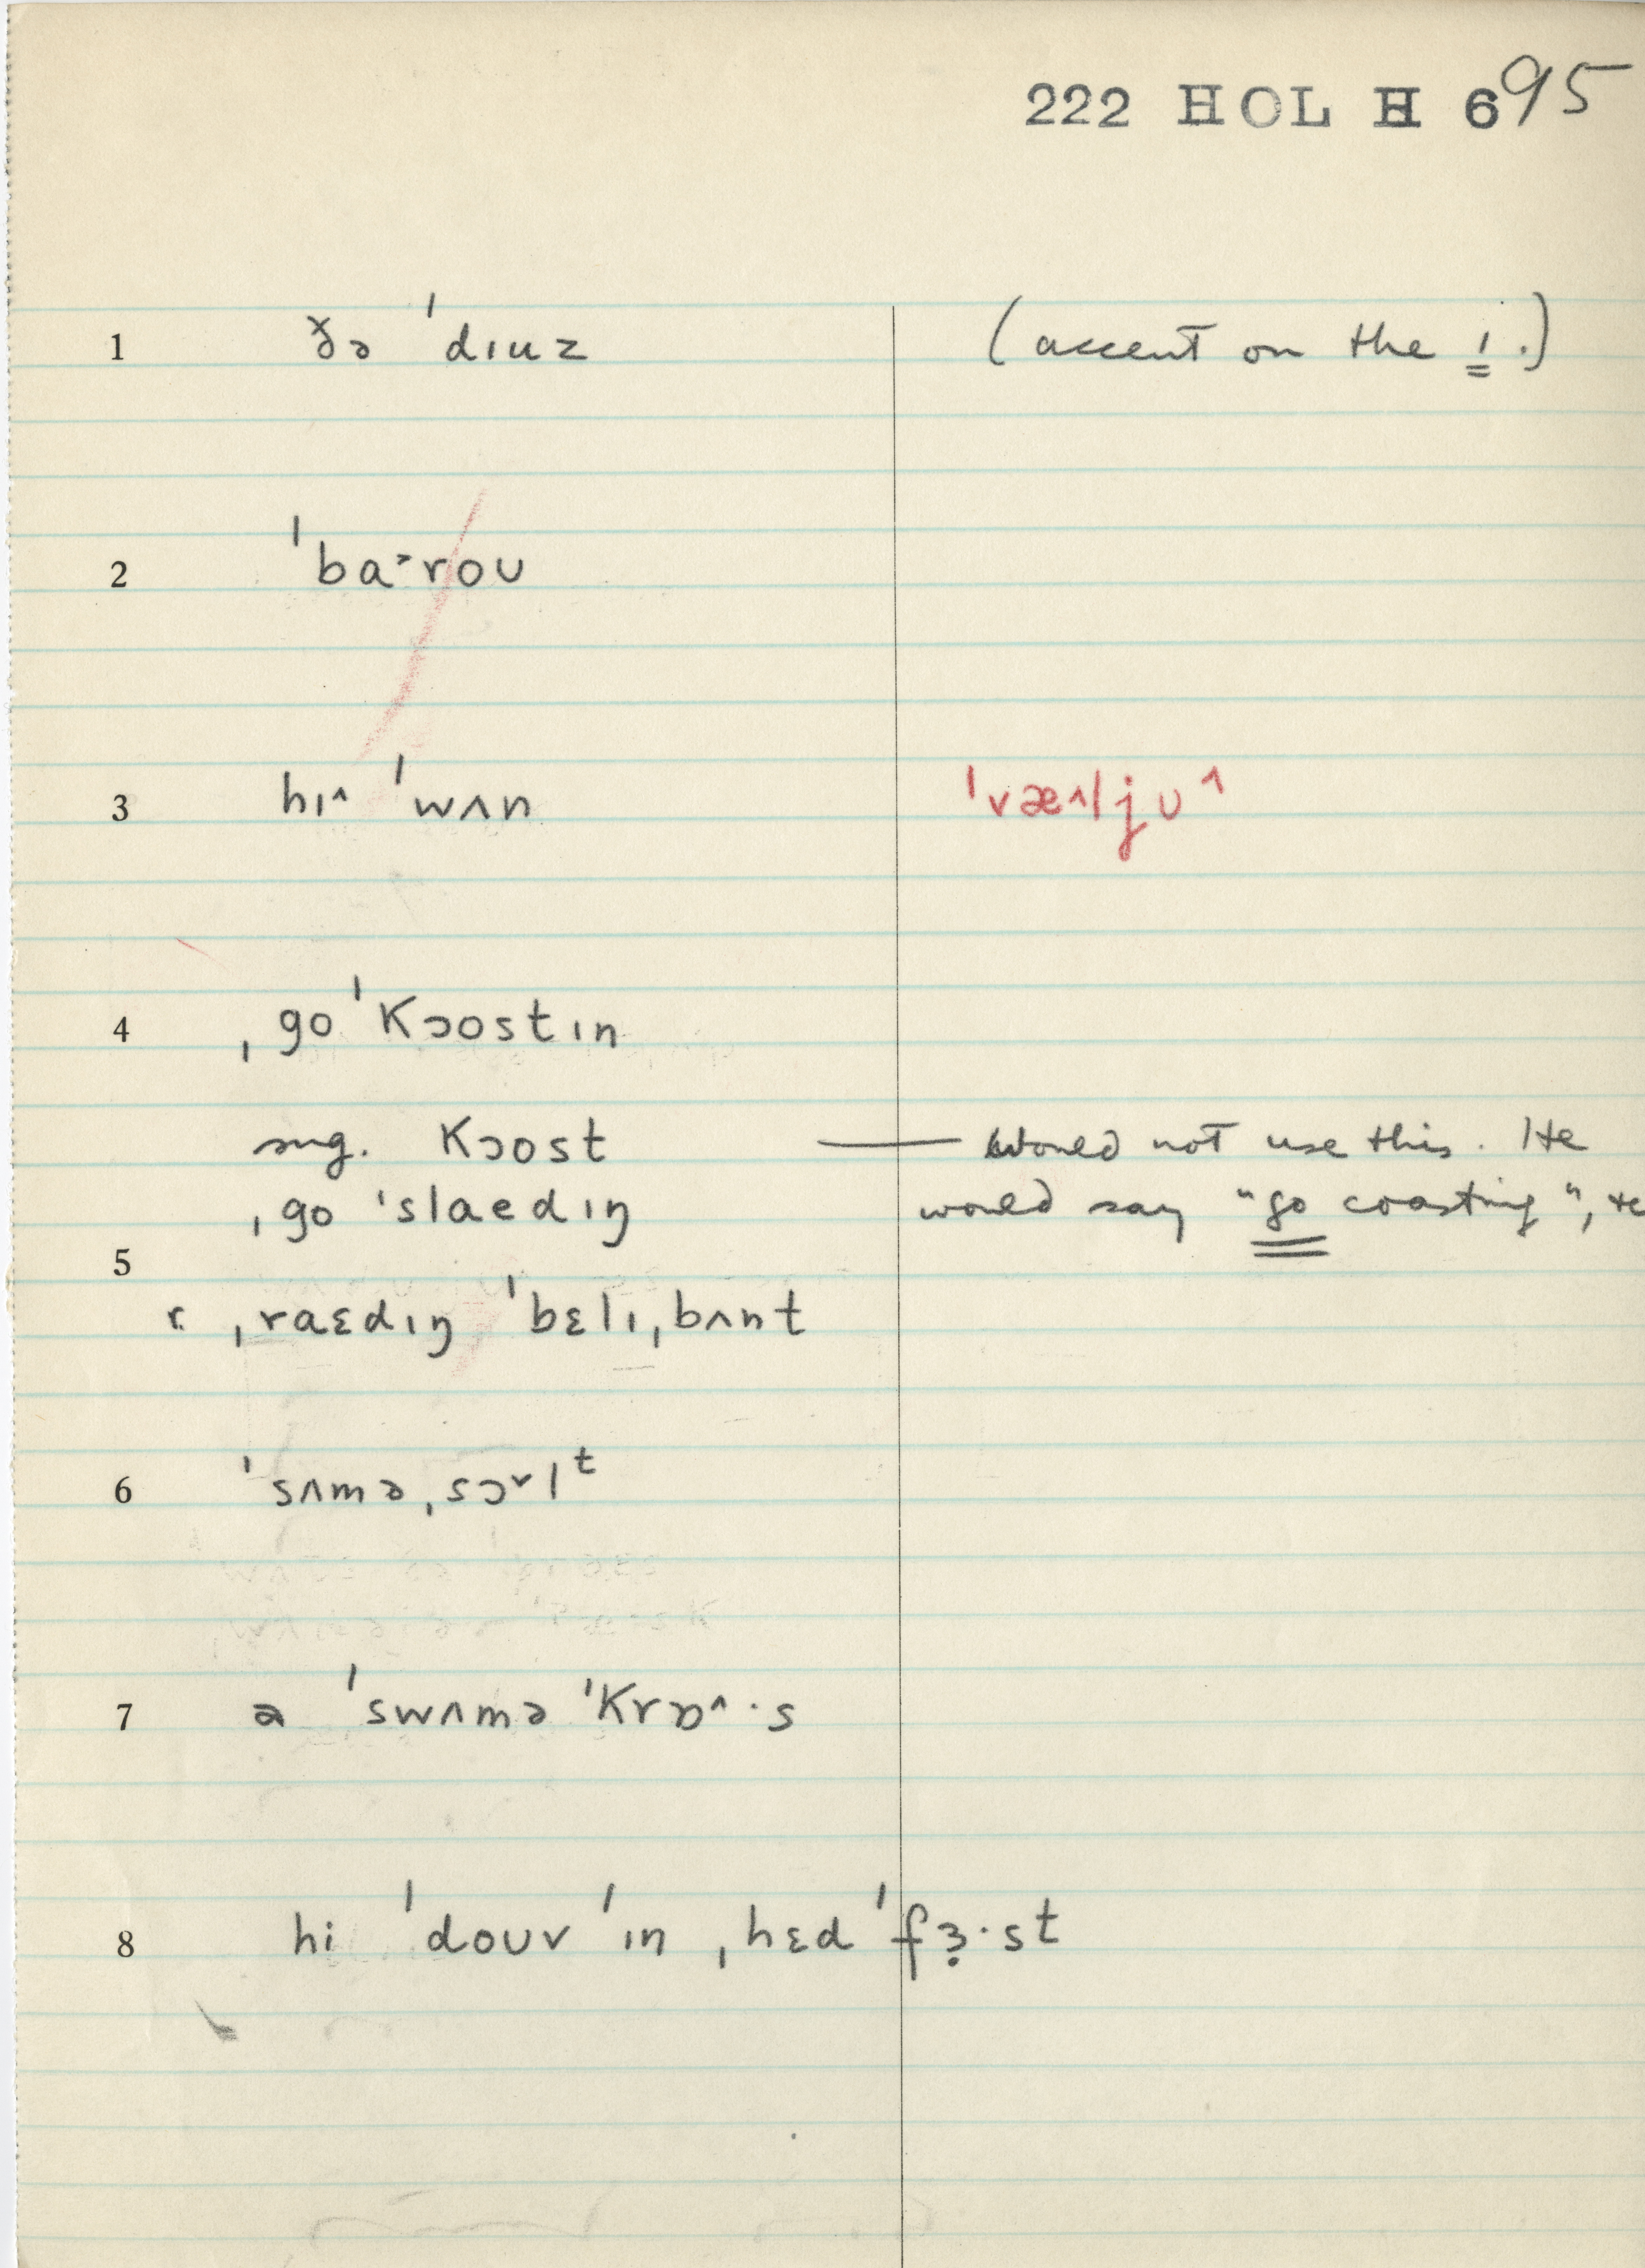 222 HOL H 695
1 ðə ˈdɪuz (accent on the ɪ.)
2 ˈba˃roʊ
3 hɪ^ ˈwʌn ˈvæ^ljʊ^
4 ˌgo ˈkɔostɪn
sug. kɔost — Would not use this. He
ˌgo ˈslaedɪŋ would say "go coasting", te
5
r. ˌraɛdɪŋ ˈbɛlɪˌbʌnt
6 ˈsʌməˌsɔ˅lᵗ
7 ə ˈswʌmə ˈkrɒ^·s
8 hi ˈdoʊv ˈɪn ˌhɛd ˈfɜ̣·st